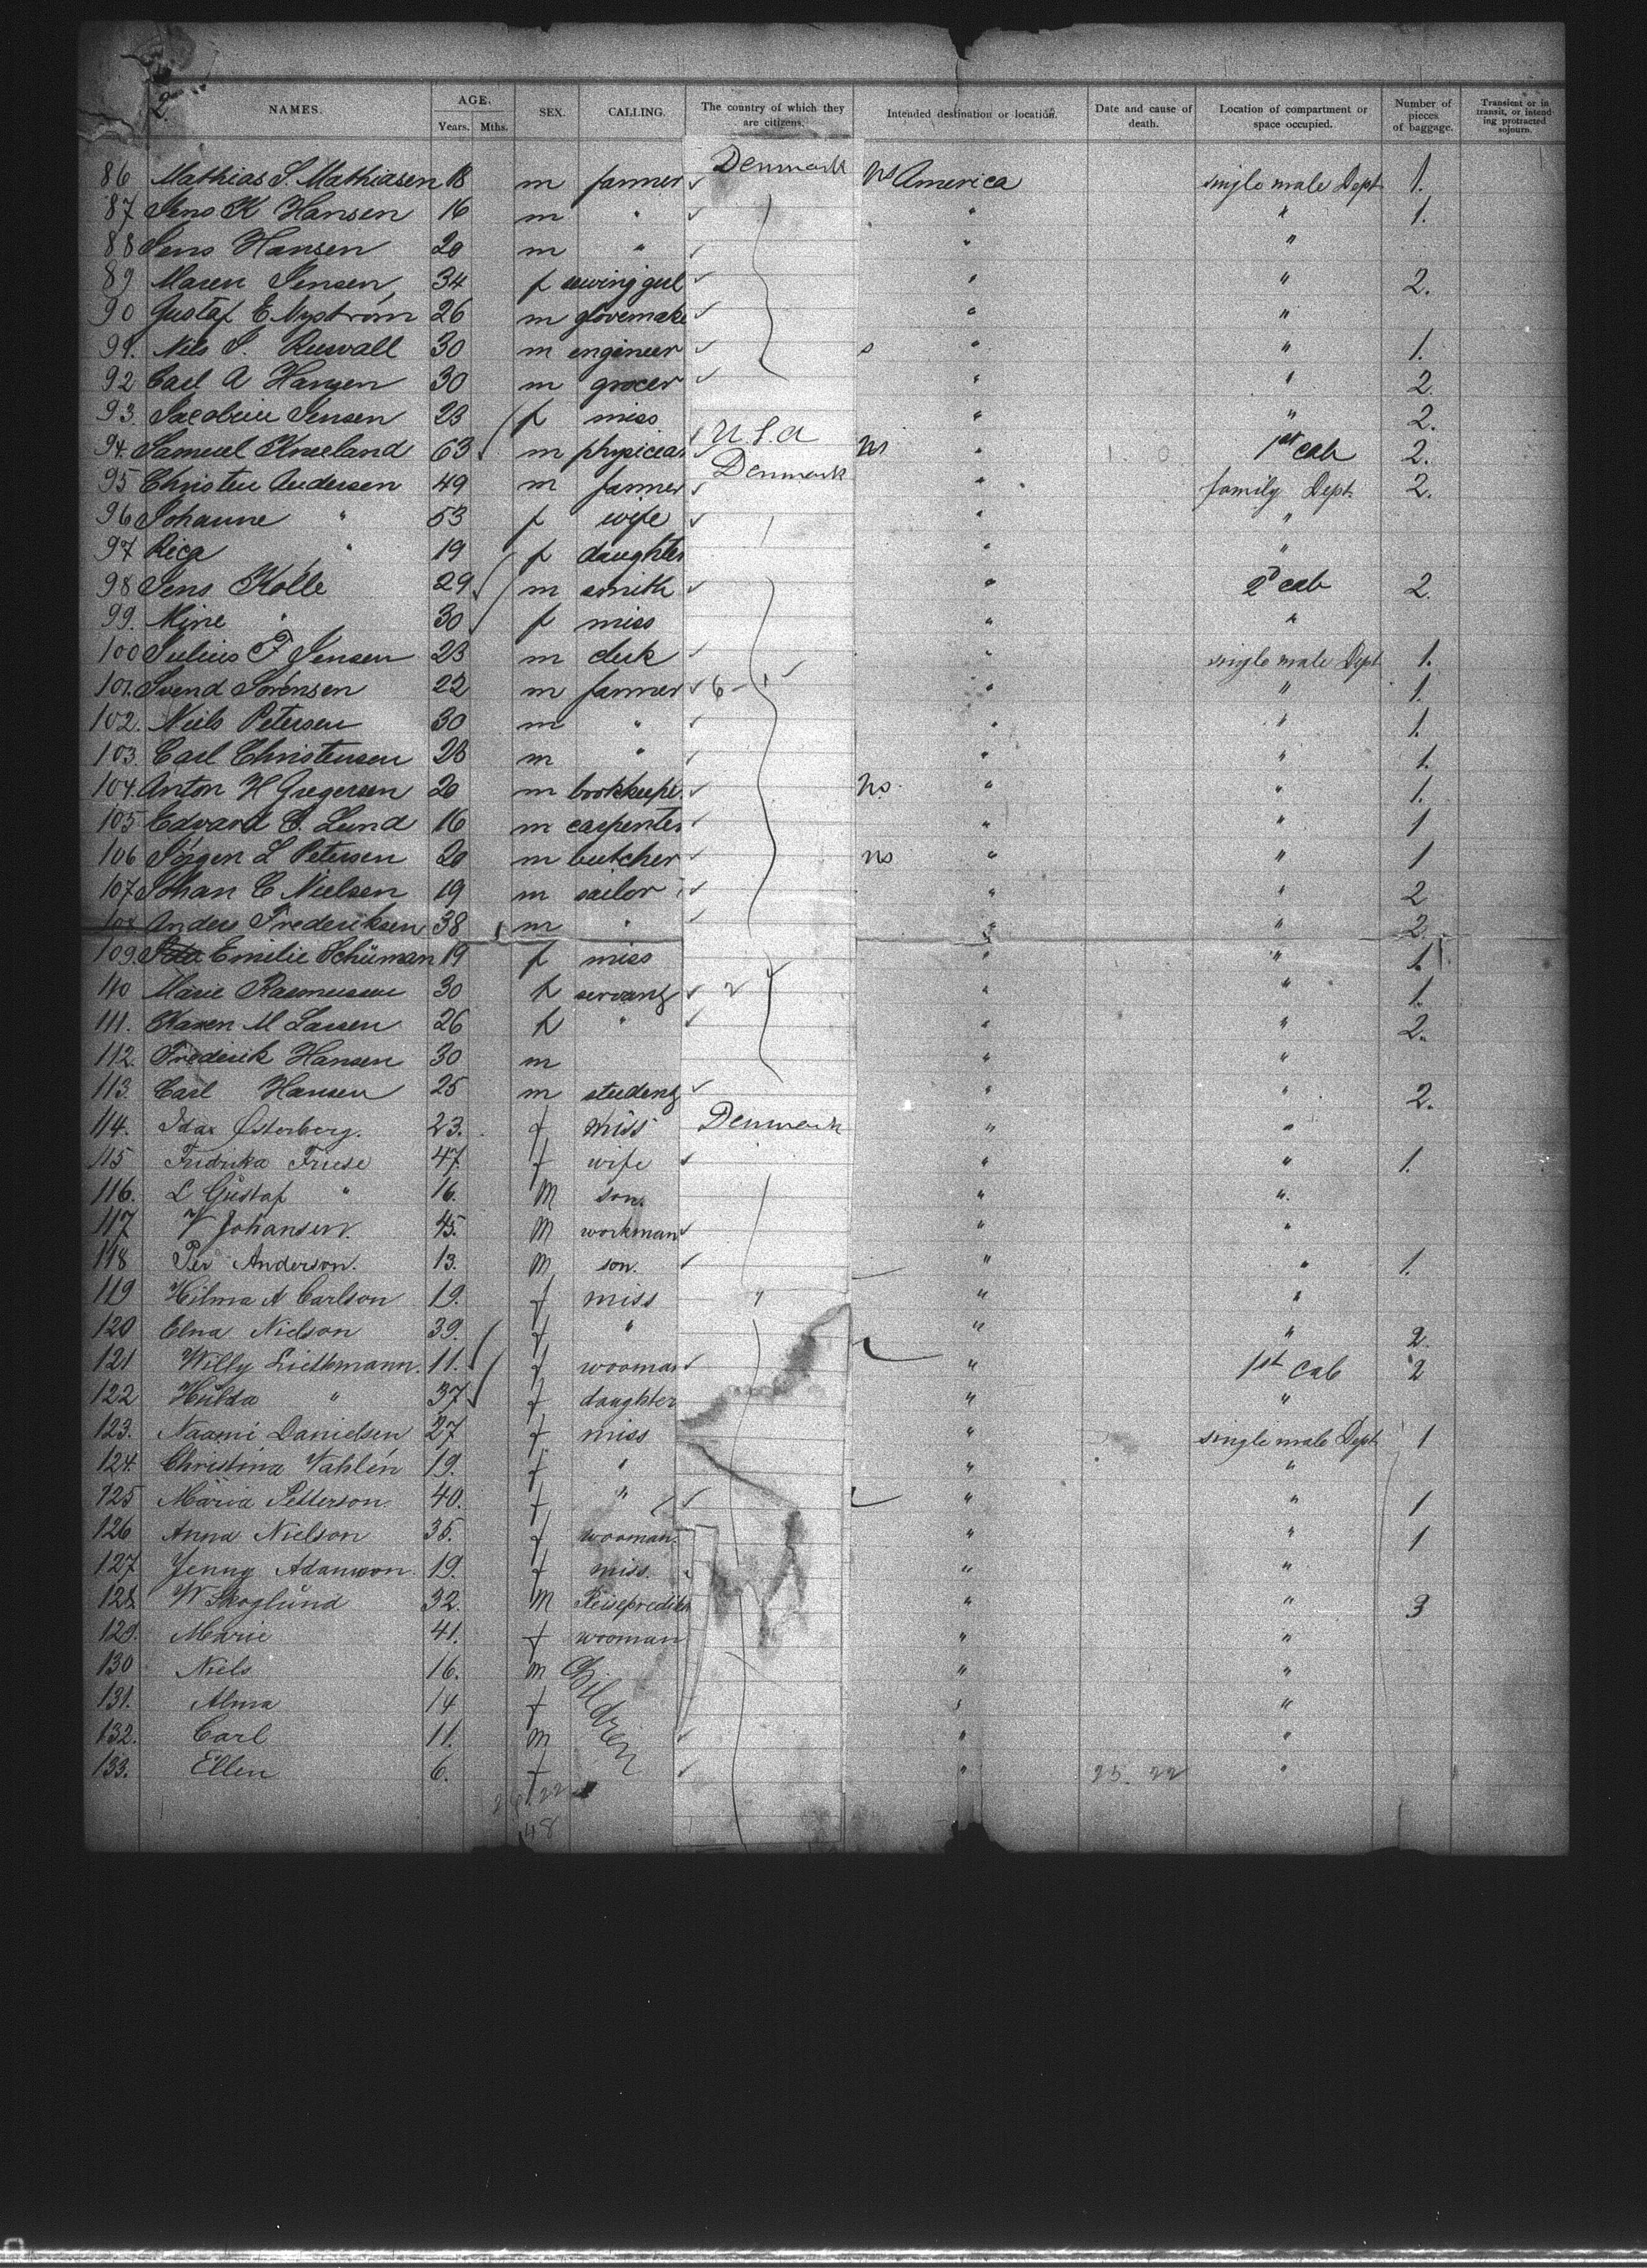 2.
NAMES. AGE. Years. Mths. SEX. CALLING. The country of which they are citizens. Intended destination or location. Date and cause of death. Location of compartment or space occupied. Number of pieces of baggage. Transient or in transit, or intending protracted sojourn.
86 Mathias S. Mathiasen 18 m farmer Denmark America single male Dept 1.
87 Jens K Hansen 16 m " " " 1.
88 Jens Hansen 20 m " " "
89 Maren Jensen 34 f sewing girl " " 2.
90 Gustaf E Nystrom 26 m glovemake " "
91. Nils S. 30 m engineer " " 1.
92 Carl A Hansen 30 m grocer " " 2.
93. Jacobine Jensen 23 f miss " " 2.
94. Samuel Kneeland 63 m physician U.S.A " 1st cab 2.
95 Christen Andersen 49 m farmer Denmark " family Dept. 2.
96 Johanne " 53 f wife " "
97 Rica " 19 f daughter " "
98 Jens Kolle 29 m smith " 2d cab 2.
99. Mine " 30 f miss " "
100 Julius F Jensen 23 m clerk " single male Dept 1.
101. Svend Sorensen 22 m farmer 6 " " 1.
102. Niels Petersen 30 m " " " 1.
103. Carl Christensen 28 m " " " 1.
104. Anton H Gregersen 20 m bookkeepe. " " 1.
105 Edvard C. Lund 16 m carpenter " " 1
106 Jörgen L Petersen 20 m butcher " " 1
107 Johan C Nielsen 19 m sailor " " 2
108 Anders Frederiksen 38 m " " " 2.
109. Emilie Schüman 19 f miss " " 1.
110 Marie Rasmussen 30 f servant " " 1.
111. Karen M Larsen 26 f " " " 2.
112. Frederik Hansen 30 m " "
113. Carl Hansen 25 m student " " 2.
114. Ida Osterberg. 23. f miss Denmark " "
115 Fridrika Friese 47 f wife " " 1.
116. L Gustaf " 16. M son. " "
117 V Johansen. 45. M workman " "
118 Per Anderson. 13. M son. " " 1.
119 Hilma A Carlson 19. f miss " " "
120 Elna Nielson 39. f " " " 2.
121 Willy 11. f wooman " 1st cab 2
122 Hulda " 37 f daughter " "
123. Naomi Danielsen 27 f miss " single male Dept 1
124. Christina Vahlén 19. f " " "
125 Maria Petterson 40. f " " " 1
126 Anna Nielson 35. f wooman. " " 1
127 Jenny Adamson. 19. f miss. " "
128 W Skoglund 32. M " " 3
129. Marie 41. f wooman " "
130 Niels 16. M Children " "
131. Alma 14 f " "
132. Carl 11. M " "
133. Ellen 6. f " 25. 22 "
22
48